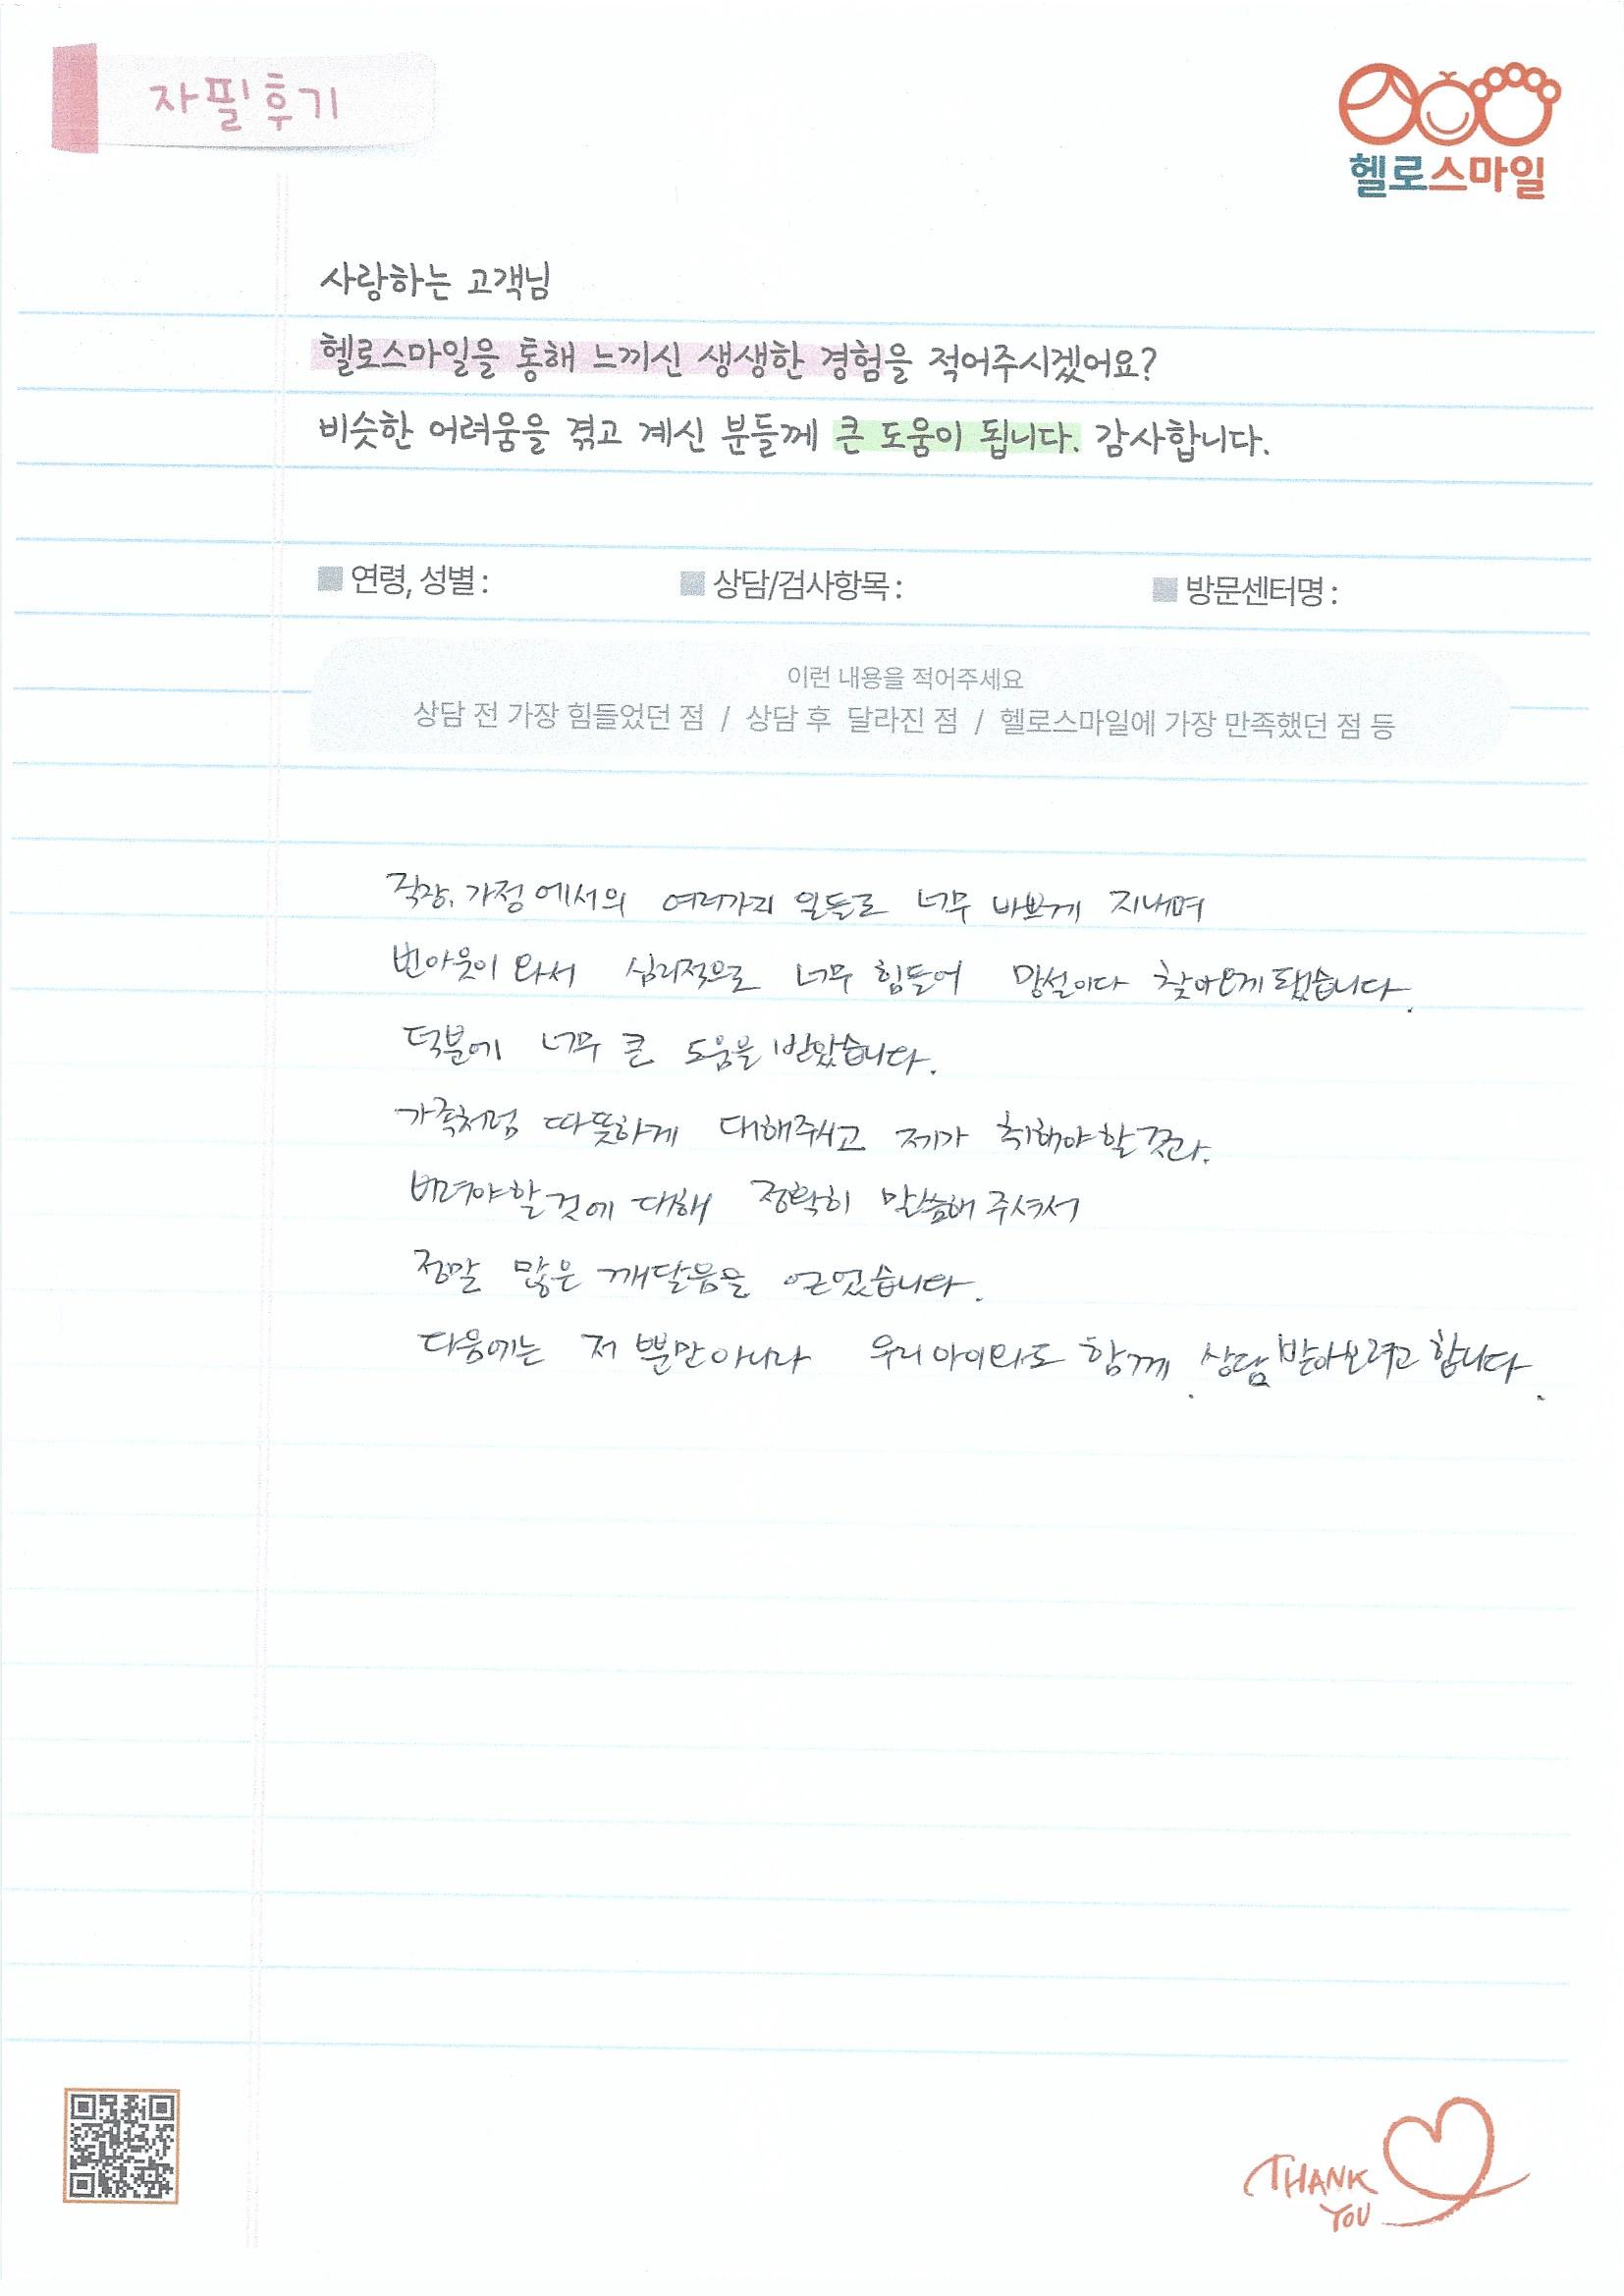 자필후기
헬로스마일
사랑하는 고객님
헬로스마일을 통해 느끼신 생생한 경험을 적어주시겠어요?
비슷한 어려움을 겪고 계신 분들께 큰 도움이 됩니다. 감사합니다.
연령, 성별 : 상담/검사항목 : 방문센터명 :
이런 내용을 적어주세요
상담 전 가장 힘들었던 점 / 상담 후 달라진 점 / 헬로스마일에 가장 만족했던 점 등
직장, 가정에서의 여러가지 일들로 너무 바쁘게 지내며
번아웃이 와서 심리적으로 너무 힘들어 망설이다 찾아오게 됐습니다.
덕분에 너무 큰 도움을 받았습니다.
가족처럼 따뜻하게 대해주시고 제가 취해야할 것과.
버려야할 것에 대해 정확히 말씀해 주셔서
정말 많은 깨달음을 얻었습니다.
다음에는 저 뿐만아니라 우리아이와도 함께 상담받아보려고 합니다.
THANK
YOU